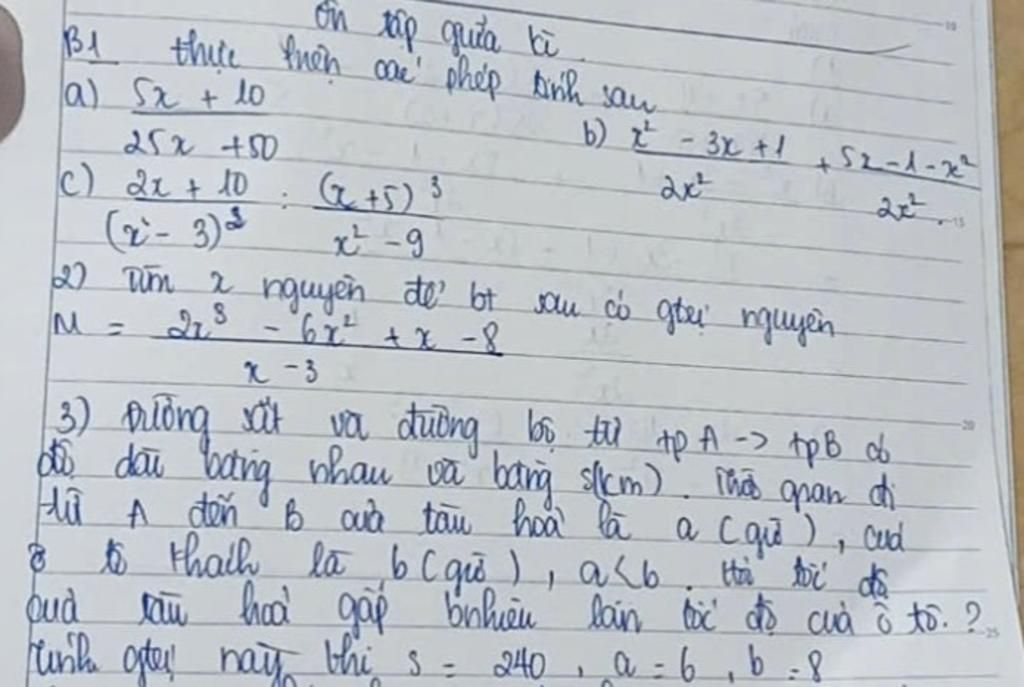 Ôn tập giữa kì
B1 thực hiện các phép tính sau
a) (5x + 10)/(25x + 50)
b) (x² - 3x + 1)/(2x²) + (5x - 1 - x²)/(2x²)
c) (2x + 10)/(x - 3)³ : (x + 5)³/(x² - 9)
2) Tìm x nguyên để bt sau có gtrị nguyên
M = (2x³ - 6x² + x - 8)/(x - 3)
3) Đường sắt và đường bộ từ tp A -> tp B có
độ dài bằng nhau và bằng s(km). Thời gian đi
từ A đến B của tàu hoả là a (giờ), của
ô tô khách là b (giờ), a < b. Hỏi tốc độ
của tàu hoả gấp bnhiêu lần tốc độ của ô tô.?
Tính gtrị này khi s = 240, a = 6, b = 8